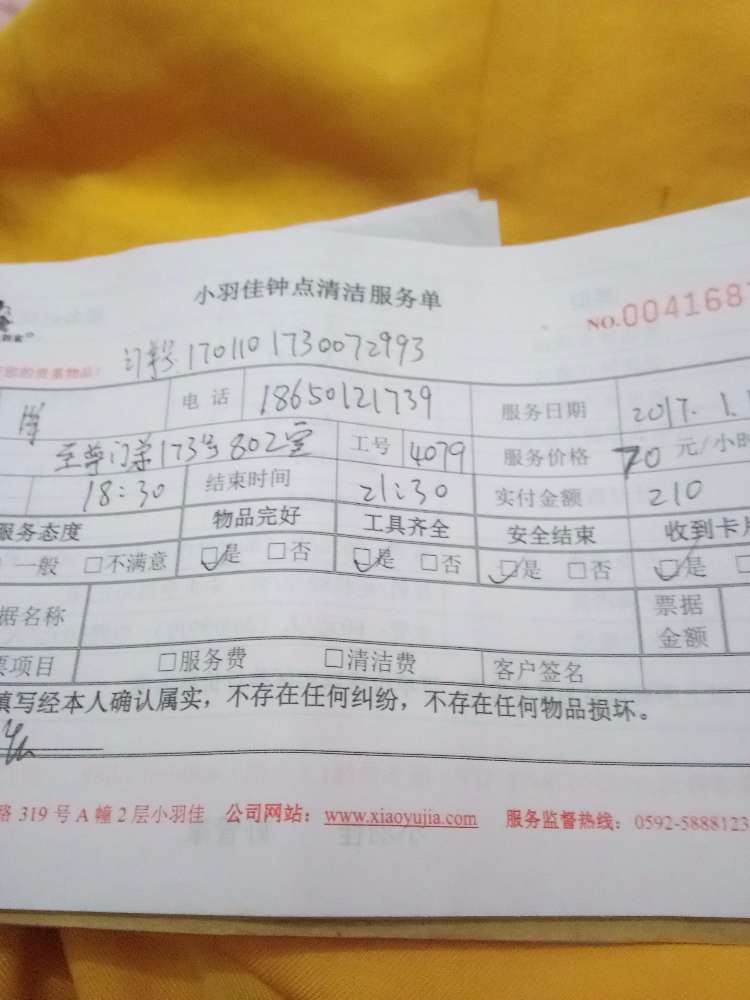 小羽佳钟点清洁服务单
NO.0041687
您的贵重物品!
订单号170110 1730072993
电话 18650121739 服务日期 2017.1.1
至尊门第173号802室 工号 4079 服务价格 70 元/小时
18:30 结束时间 21:30 实付金额 210
服务态度 物品完好 工具齐全 安全结束 收到卡片
一般 □不满意 ☑是 □否 ☑是 □否 ☑是 □否 ☑是 □
据名称 票据金额
票项目 □服务费 □清洁费 客户签名
填写经本人确认属实，不存在任何纠纷，不存在任何物品损坏。
路 319 号 A 幢 2 层小羽佳 公司网站：www.xiaoyujia.com 服务监督热线：0592-5888123